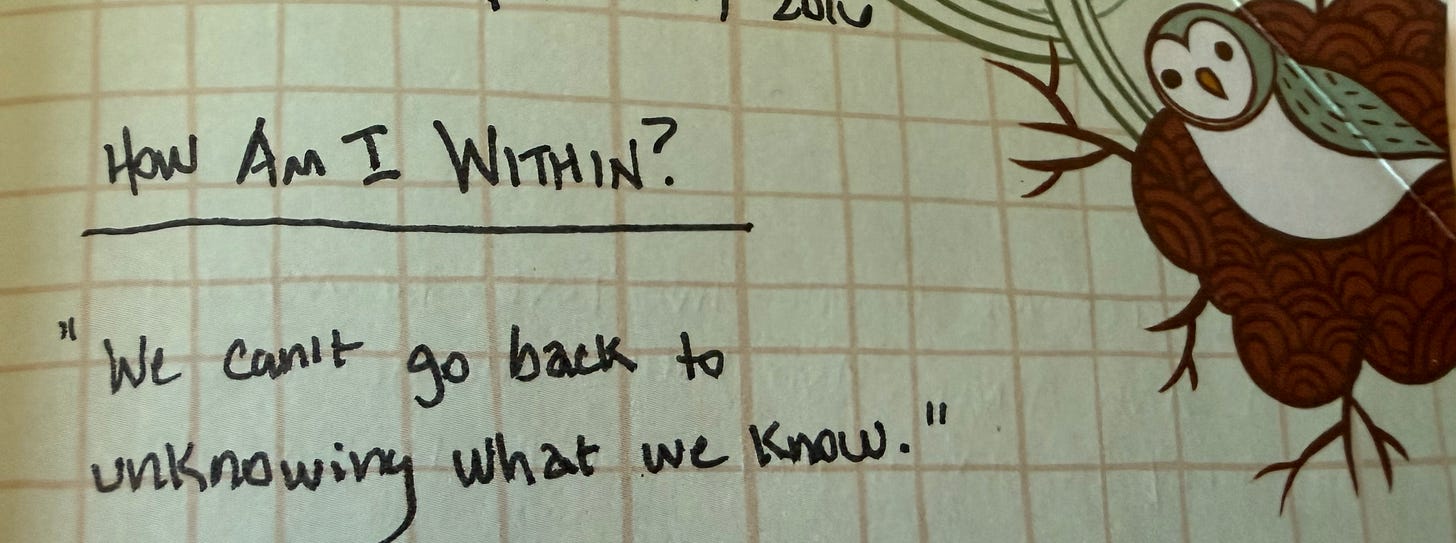 2016
How Am I Within?
"We can't go back to
unknowing what we know."